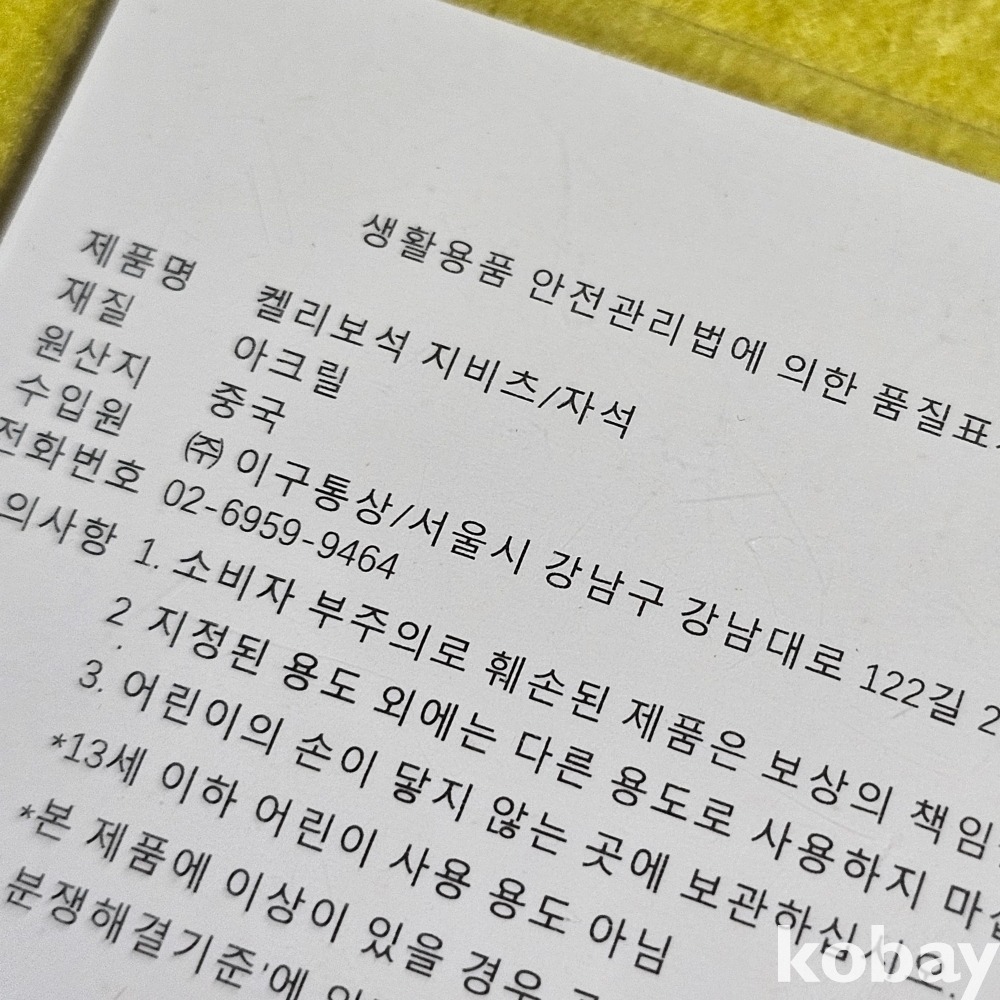 생활용품 안전관리법에 의한 품질표
제품명 켈리보석 지비츠/자석
재질 아크릴
원산지 중국
수입원 ㈜ 이구통상/서울시 강남구 강남대로 122길 2
전화번호 02-6959-9464
의사항 1. 소비자 부주의로 훼손된 제품은 보상의 책임
2. 지정된 용도 외에는 다른 용도로 사용하지 마
3. 어린이의 손이 닿지 않는 곳에 보관하십시오.
*13세 이하 어린이 사용 용도 아님
*본 제품에 이상이 있을 경우
분쟁해결기준'에
kobay